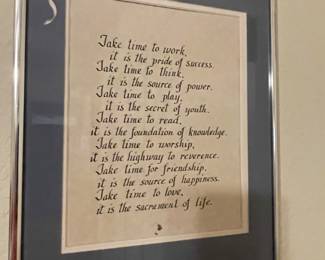 Take time to work,
it is the pride of success.
Take time to think,
it is the source of power.
Take time to play,
it is the secret of youth.
Take time to read,
it is the foundation of knowledge.
Take time to worship,
it is the highway to reverence.
Take time for friendship,
it is the source of happiness.
Take time to love,
it is the sacrament of life.